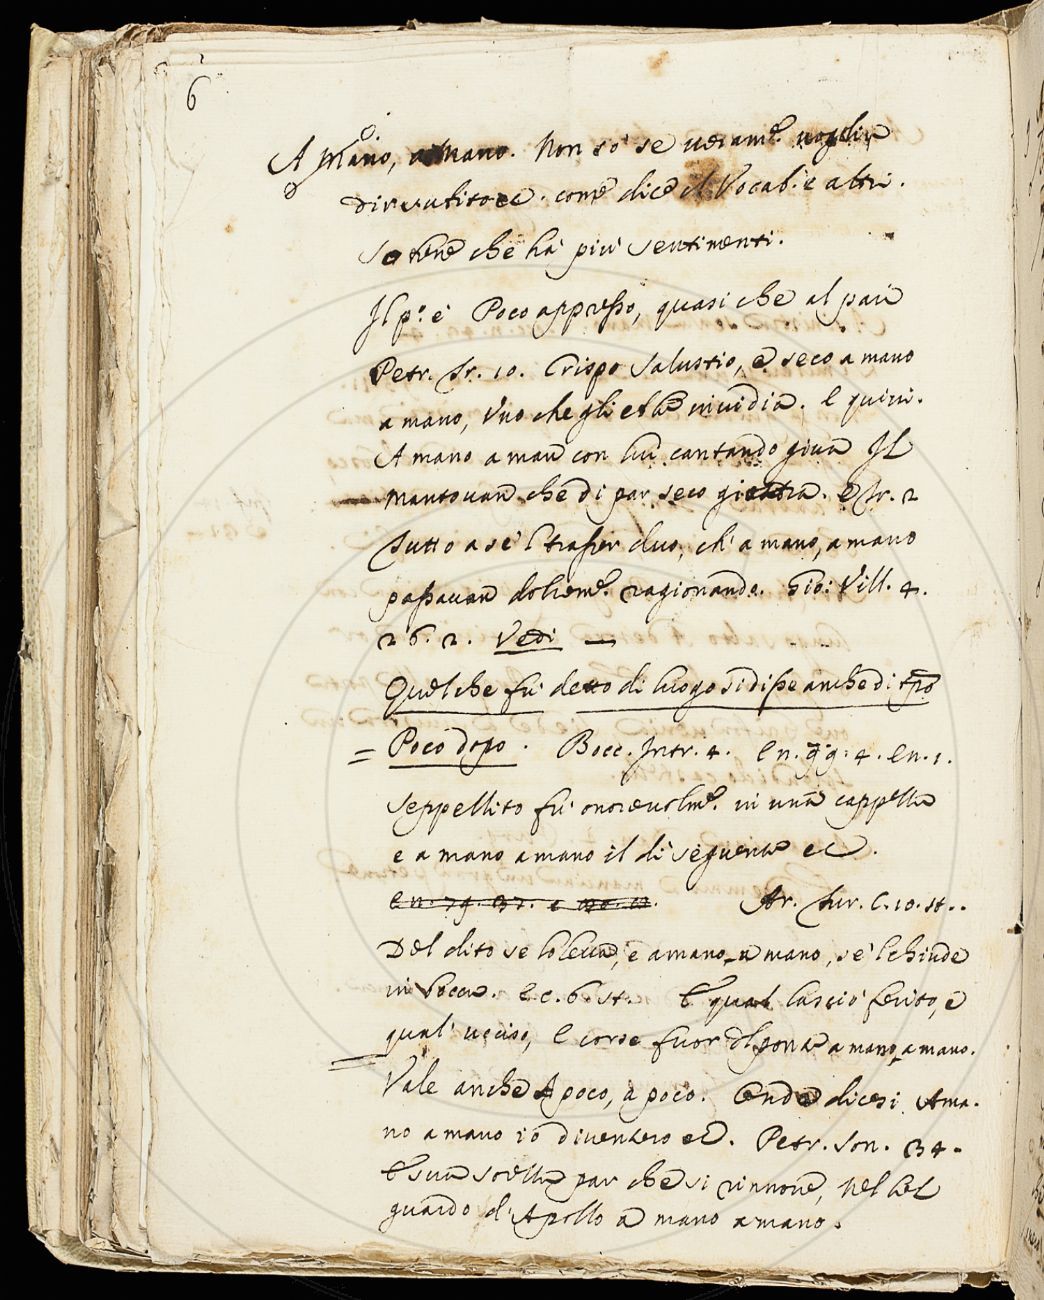 6
A Mano, a Mano. Non so se veram.e voglia
dir subito ec. come dice il Vocab. e altri.
So bene che ha più sentimenti.
Il p.o è Poco appresso, quasi che al pari
Petr. Tr. 10. Crispo Salustio, e seco a mano
a mano, Uno che gli ebbe invidia. E quivi.
A mano a man con lui cantando giva Il
Mantovan che di par seco giostra. e Tr. 2
Tutto a se 'l trasser duo, ch' a mano, a mano
passavan dolcem.e ragionando. Gio: Vill. 4.
26. 2. Vedi —
Quel che fu detto di luogo si disse anche di tpo
= Poco dopo. Bocc. Intr. 4. e n. gg. 4. e n. 1.
Seppellito fu onorevolm.e in una cappella
e a mano a mano il dì seguente ec.
Ar. Fur. C. 10. st..
Del dito se lo leva, e a mano, a mano, se 'l chiude
in bocca. e c. 6 st. E qual lasciò ferito, e
qual' ucciso, E corse fuor del ponte a mano, a mano.
= Vale anche A poco, a poco. Onde dicesi A ma-
no a mano io diventero ec. Petr. Son. 34.
E sua sorella par che si rinnove, Nel bel
guardo d'Apollo a mano a mano.